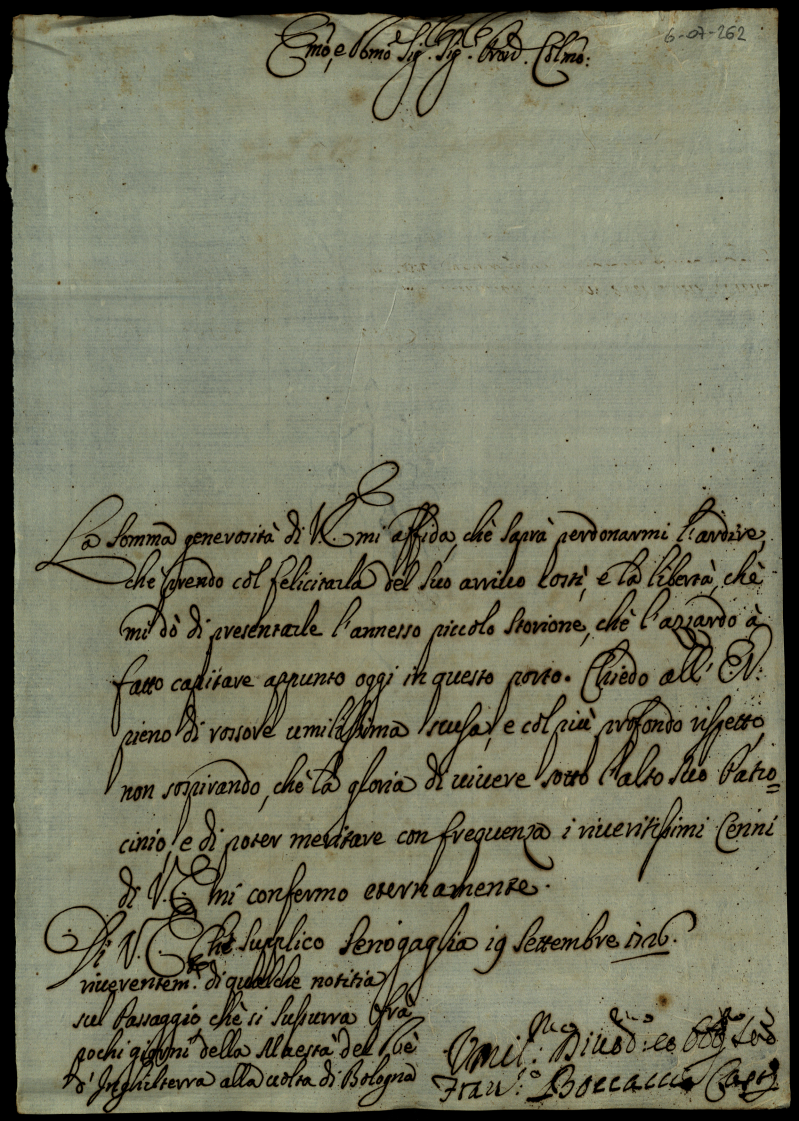 6-07-262
Emo, e Rmo Sig.r Sig.r Pron. Colmo:
La somma generosità di V.E. mi affida, chè saprà perdonarmi l'ardire,
chè prendo col felicitarla del suo arrivo costì, e la libertà, chè
mi dò di presentarle l'annesso piccolo storione, chè l'azzardo à
fatto capitare appunto oggi in questo porto. Chiedo all' E.V.
pieno di rossore umilissima scusa, e col più profondo rispetto,
non sospirando, chè la gloria di vivere sotto l'alto suo Patro=
cinio, e di poter meritare con frequenza i riveritissimi Cenni
di V.E. mi confermo eternamente.
Di V. E. chè supplico Senogaglia 19 Settembre 1726.
riverentem.te di qualche notitia
sul Passaggio, chè si susurra frà
pochi giorni della Maestà del Rè
d'Inghilterra alla volta di Bologna
Umil.mo Divod.mo ed Obb.mo
Fran.co Boccacci